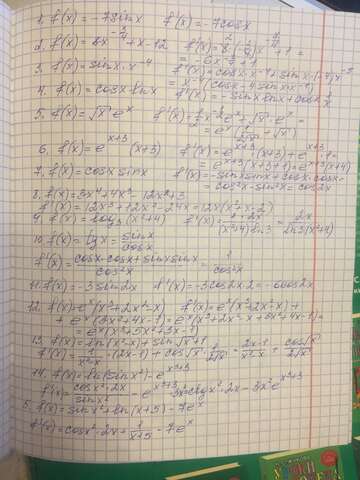 1. f(x) = -7sinx f'(x) = -7cosx
2. f(x) = 8x^{-3/4} + x - 12 f'(x) = 8·(-3/4)x^{-7/4} + 1 =
= -6x^{-7/4} + 1
3. f(x) = sinx·x^{-4} f'(x) = cosx·x^{-4} + sinx·(-4)x^{-5}
= x^{-4}(cosx - 4sinx·x^{-1})
4. f(x) = cosx lnx f'(x) = -sinx lnx + cosx·1/x
5. f(x) = √x·e^x
= e^x(1/2√x + √x)
6. f(x) = e^{x+3}(x+3) f'(x) = e^{x+3}(x+3) + e^{x+3}·1 =
= e^{x+3}(x+3+1) = e^{x+3}(x+4)
7. f(x) = cosx sinx f'(x) = -sinx sinx + cosx·cosx =
= cos²x - sin²x = cos2x
8. f(x) = 3x⁴ + 4x³ - 12x² + 3
f'(x) = 12x³ + 12x² - 24x = 12x(x²+x-2)
9. f(x) = log₃(x²+4) f'(x) = 1·2x/(x²+4)ln3 = 2x/ln3(x²+4)
10. f(x) = tgx = sinx/cosx
f'(x) = cosx·cosx + sinx sinx/cos²x = 1/cos²x
11. f(x) = -3sin2x f'(x) = -3cos2x·2 = -6cos2x
12. f(x) = e^x(x³+2x²-x) f'(x) = e^x(x³+2x²-x) +
+ e^x(3x²+4x-1) = e^x(x³+2x²-x+3x²+4x-1) =
= e^x(x³+5x²+3x-1)
13. f(x) = ln(x²-x) + sin√x+1
f'(x) = 1/x²-x·(2x-1) + cos√x·1/2√x = 2x-1/x²-x + cos√x/2√x
14. f(x) = ln(sinx²) - e^{x³+3}
f'(x) = cosx²·2x/sinx² - e^{x³+3}·3x² = ctgx²·2x - 3x²e^{x³+3}
5. f(x) = sinx² + ln(x+5) - 7e^x
f'(x) = cosx²·2x + 1/x+5 - 7e^x